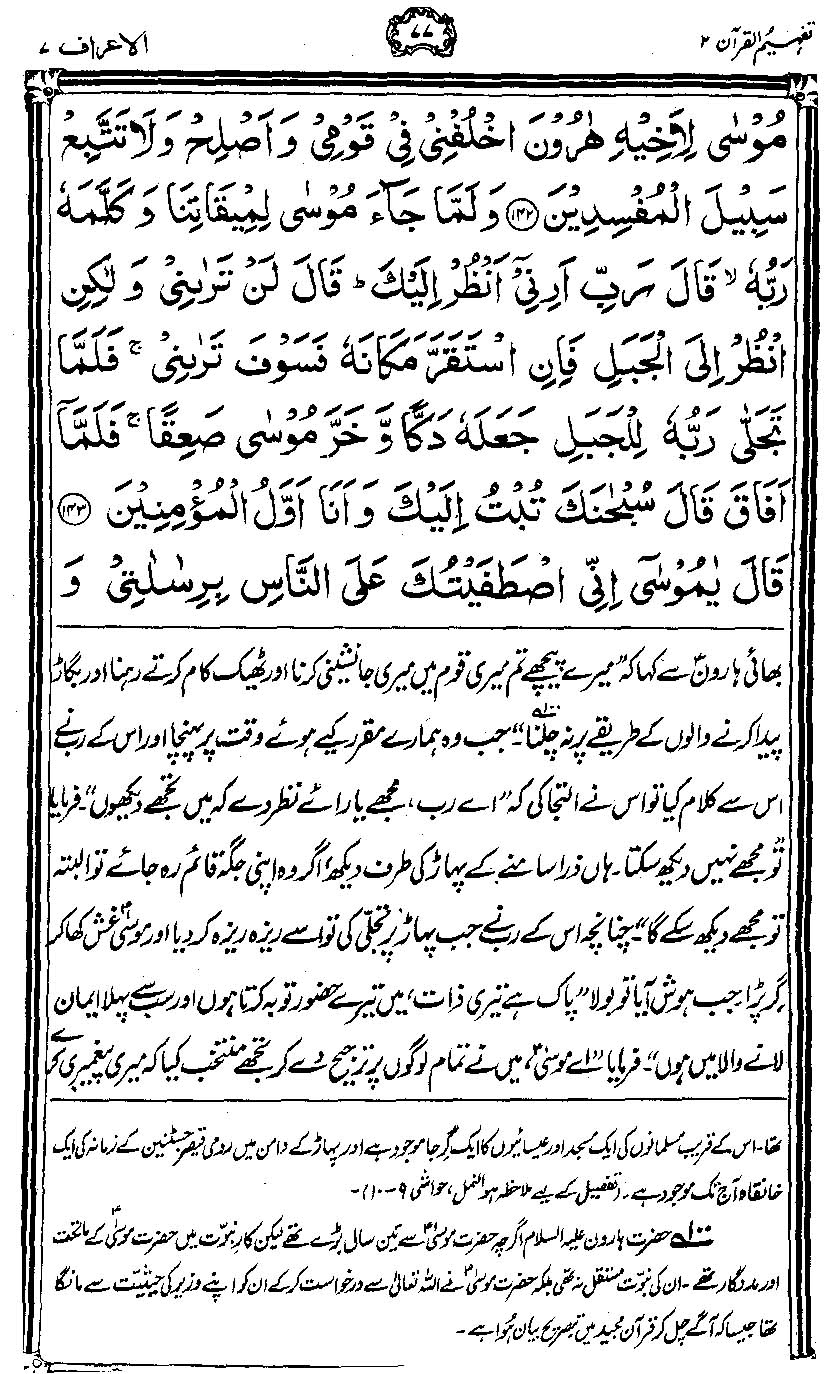 تفہیم القرآن ۲
۷۷
الاعراف ۷
مُوْسٰى لِاَخِيْهِ هٰرُوْنَ اخْلُفْنِيْ فِيْ قَوْمِيْ وَاَصْلِحْ وَلَا تَتَّبِعْ
سَبِيْلَ الْمُفْسِدِيْنَ ﴿۱۴۲﴾ وَلَمَّا جَآءَ مُوْسٰى لِمِيْقَاتِنَا وَكَلَّمَهٗ
رَبُّهٗ ۙ قَالَ رَبِّ اَرِنِيْٓ اَنْظُرْ اِلَيْكَ ؕ قَالَ لَنْ تَرٰىنِيْ وَلٰكِنِ
انْظُرْ اِلَى الْجَبَلِ فَاِنِ اسْتَقَرَّ مَكَانَهٗ فَسَوْفَ تَرٰىنِيْ ۚ فَلَمَّا
تَجَلّٰى رَبُّهٗ لِلْجَبَلِ جَعَلَهٗ دَكًّا وَّخَرَّ مُوْسٰى صَعِقًا ۚ فَلَمَّآ
اَفَاقَ قَالَ سُبْحٰنَكَ تُبْتُ اِلَيْكَ وَاَنَا اَوَّلُ الْمُؤْمِنِيْنَ ﴿۱۴۳﴾
قَالَ يٰمُوْسٰٓى اِنِّي اصْطَفَيْتُكَ عَلَى النَّاسِ بِرِسٰلٰتِيْ وَ
بھائی ہارونؑ سے کہا کہ ”میرے پیچھے تم میری قوم میں میری جانشینی کرنا اور ٹھیک کام کرتے رہنا اور بگاڑ
پیدا کرنے والوں کے طریقے پر نہ چلنا“۔۱۰۰ جب وہ ہمارے مقرر کیے ہوئے وقت پر پہنچا اور اس کے رب نے
اس سے کلام کیا تو اس نے التجا کی کہ ”اے رب، مجھے یارائے نظر دے کہ میں تجھے دیکھوں“۔ فرمایا
”تُو مجھے نہیں دیکھ سکتا۔ ہاں ذرا سامنے کے پہاڑ کی طرف دیکھ، اگر وہ اپنی جگہ قائم رہ جائے تو البتہ
تو مجھے دیکھ سکے گا“۔ چنانچہ اس کے رب نے جب پہاڑ پر تجلّی کی تو اسے ریزہ ریزہ کر دیا اور موسیٰؑ غش کھا کر
گِر پڑا۔ جب ہوش آیا تو بولا ”پاک ہے تیری ذات، میں تیرے حضور توبہ کرتا ہوں اور سب سے پہلا ایمان
لانے والا میں ہوں“۔ فرمایا ”اے موسیٰؑ، میں نے تمام لوگوں پر ترجیح دے کر تجھے منتخب کیا کہ میری پیغمبری کرے
تھا۔ اس کے قریب مسلمانوں کی ایک مسجد اور عیسائیوں کا ایک گرجا موجود ہے اور پہاڑ کے دامن میں رومی قیصر جسٹنین کے زمانہ کی ایک
خانقاہ آج تک موجود ہے۔ (تفصیل کے لیے ملاحظہ ہو النمل، حواشی ۹-۱۰)۔
۱۰۰ حضرت ہارون علیہ السلام اگرچہ حضرت موسیٰؑ سے تین سال بڑے تھے لیکن کارِ نبوّت میں حضرت موسیٰؑ کے ماتحت
اور مددگار تھے۔ ان کی نبوّت مستقل نہ تھی بلکہ حضرت موسیٰؑ نے اللہ تعالیٰ سے درخواست کر کے ان کو اپنے وزیر کی حیثیت سے مانگا
تھا جیسا کہ آگے چل کر قرآن مجید میں بتصریح بیان ہُوا ہے۔